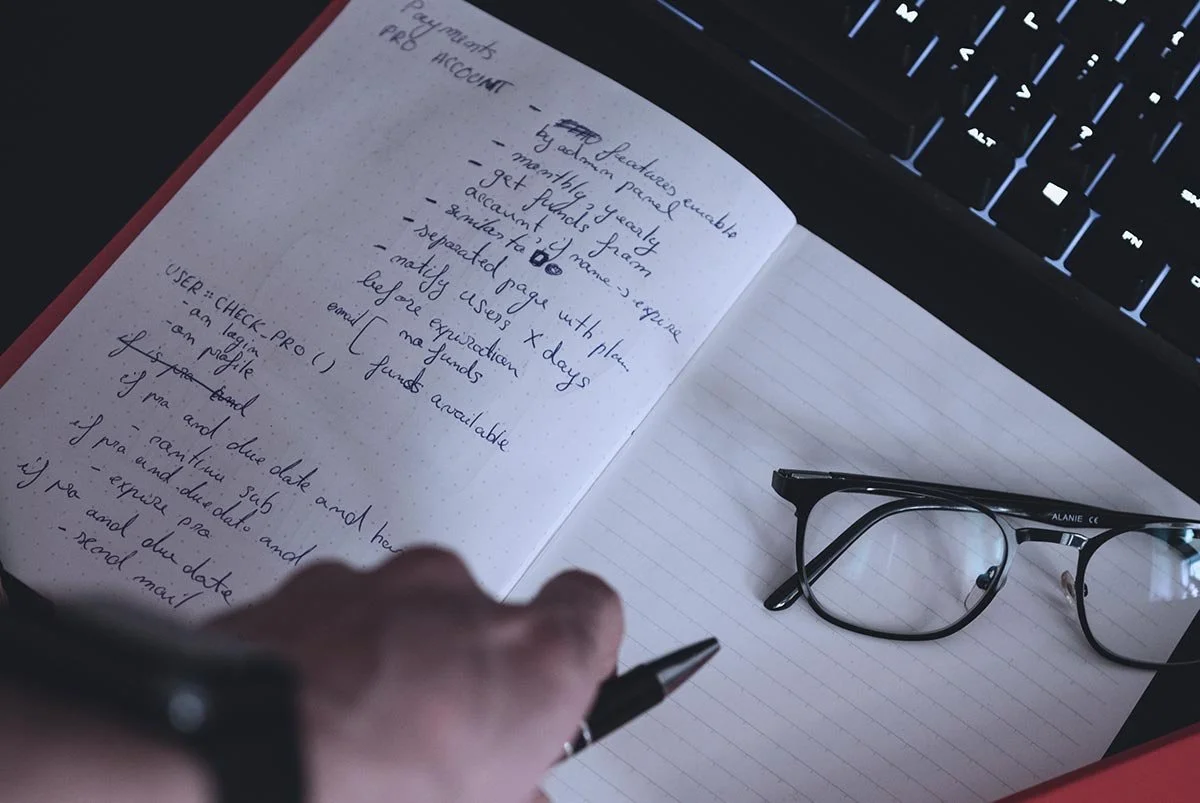 Payments
PRO ACCOUNT
- features enable
by admin panel
- monthly, yearly
- get funds from
account, if name -> expire
- similar to DO
- separated page with plan
- notify users X days
before expiration
email [ no funds
funds available
USER::CHECK_PRO()
- on login
- on profile
if is pro and
if pro and due date and
- continue sub
if pro and due date and
- expire pro
if pro and due date
- send mail
M
ALT
FN
ALANIE CE